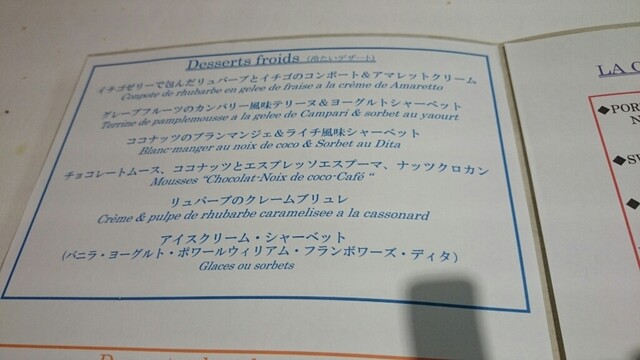 Desserts froids (冷たいデザート)
イチゴゼリーで包んだリュバーブとイチゴのコンポート＆アマレットクリーム
Conpote de rhubarbe en gelee de fraise a la crème de Amaretto
グレープフルーツのカンパリー風味テリーヌ＆ヨーグルトシャーベット
Terrine de pamplemousse a la gelee de Campari & sorbet au yaourt
ココナッツのブランマンジェ＆ライチ風味シャーベット
Blanc-manger au noix de coco & Sorbet au Dita
チョコレートムース、ココナッツとエスプレッソエスプーマ、ナッツクロカン
Mousses "Chocolat-Noix de coco-Café "
リュバーブのクレームブリュレ
Crème & pulpe de rhubarbe caramelisee a la cassonard
アイスクリーム・シャーベット
(バニラ・ヨーグルト・ポワールウィリアム・フランボワーズ・ディタ)
Glaces ou sorbets
LA C
◆POR
N
◆
◆